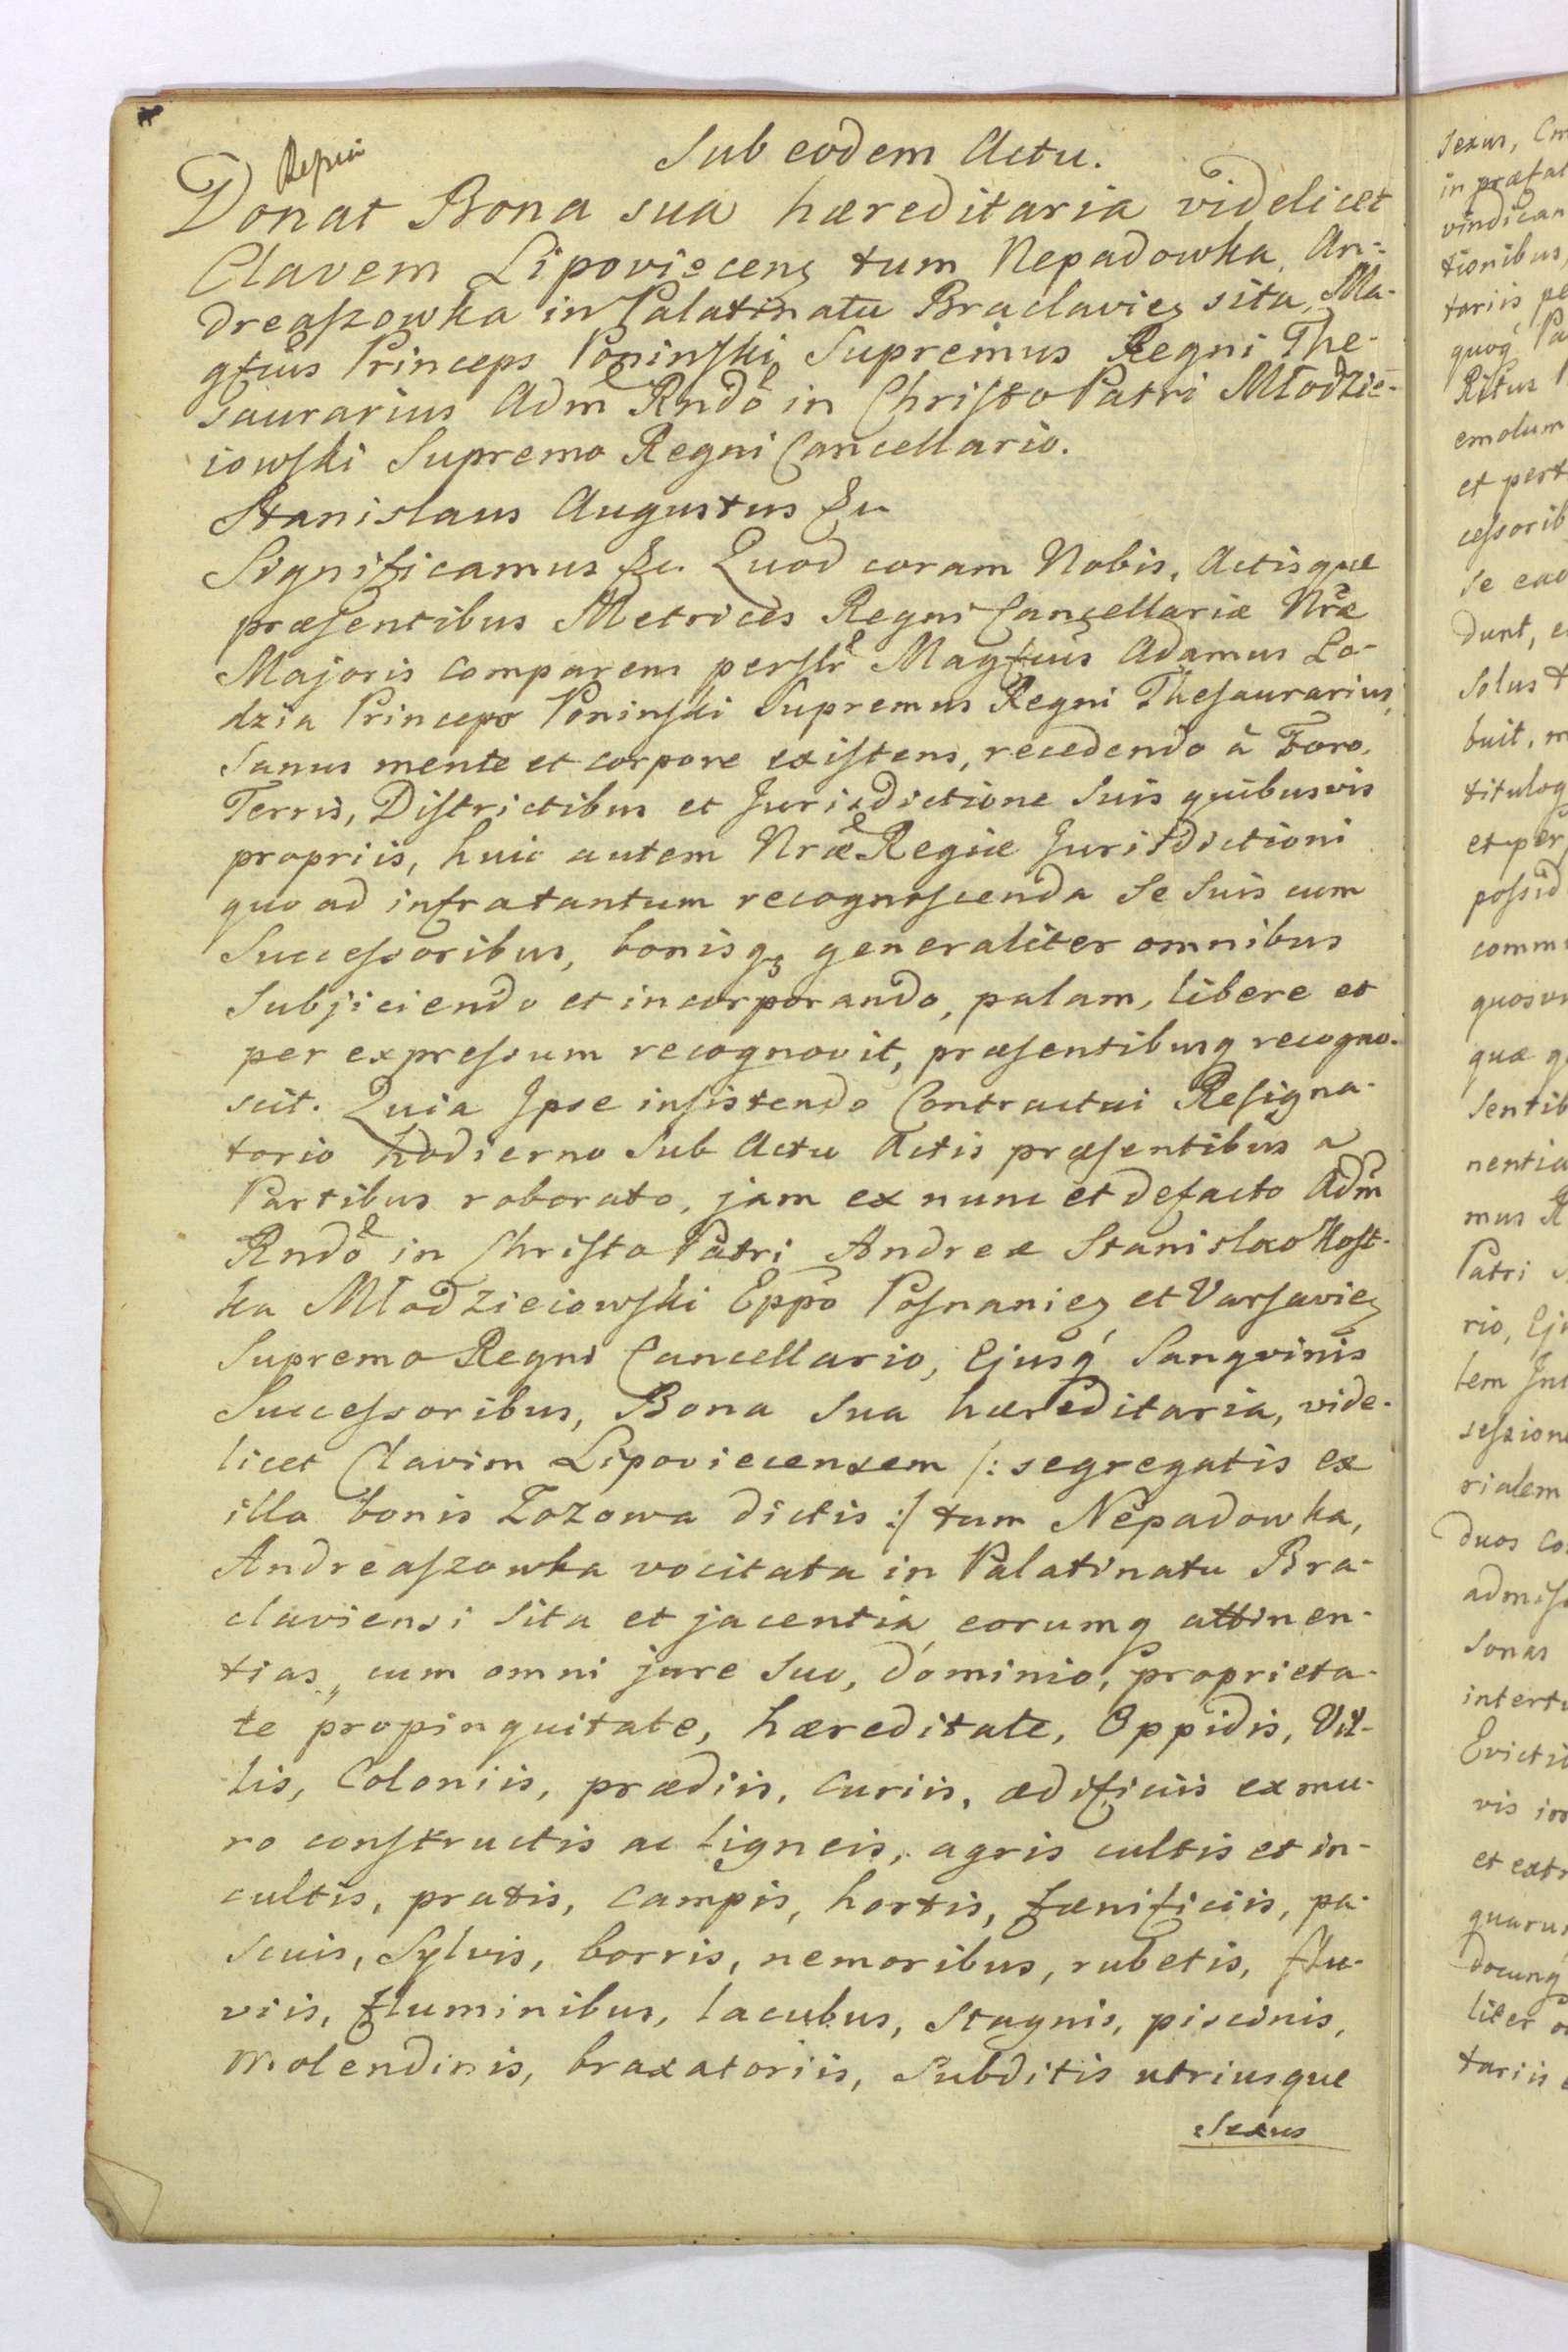 Sub eodem Actu.
Donat Bona sua hæreditaria videlicet
Clavem Lipoviecens tum Nepadowka, An-
dreaszowka in Palatinatu Braclavies sita, Ma-
gfcus Princeps Poninski Supremus Regni The-
saurarius Adm Rndo in Christo Patri Młodzie-
iowski Supremo Regni Cancellario.
Stanislaus Augustus &c.
Significamus &c. Quod coram Nobis, Actisque
præsentibus Metrices Regni Cancellariæ Nræ
Majoris comparens perslr Magfcus Adamus Lo-
dzia Princeps Poninski Supremus Regni Thesaurarius,
Sanus mente et corpore existens, recedendo à Foro,
Terris, Districtibus et Jurisdictione Suis quibusvis
propriis, huic autem Nræ Regiæ Jurisdictioni
quo ad infratantum recognoscenda Se Suis cum
Successoribus, bonisq3 generaliter omnibus
Subjiciendo et incorporando, palam, libere et
per expressum recognovit, præsentibusq recogno-
scit. Quia Ipse insistendo Contractui Resigna-
torio hodierno Sub Actu Actis præsentibus a
Partibus roborato, jam ex nunc et defacto Adm
Rndo in Christo Patri Andreæ Stanislao Kost-
ka Młodzieiowski Eppo Posnanies et Varsavies
Supremo Regni Cancellario, Ejusq Sangvinis
Successoribus, Bona Sua hæreditaria, vide-
licet Clavim Lipoviecensem /: segregatis ex
illa bonis Łozowa dictis :/ tum Nepadowka,
Andreaszowka vocitata in Palatinatu Bra-
claviensi Sita et jacentia, eorumq attinen-
tias, cum omni jure Suo, dominio, proprieta-
te propinquitate, hæreditate, Oppidis, Vil-
lis, Coloniis, prædiis, Curiis, ædificiis ex mu-
ro constructis ac ligneis, agris cultis et in-
cultis, pratis, Campis, hortis, fænificiis, pa-
scuis, Sylvis, borris, nemoribus, rubetis, flu-
viis, fluminibus, lacubus, Stagnis, piscinis,
molendinis, braxatoriis, Subditis utriusque
Sexus